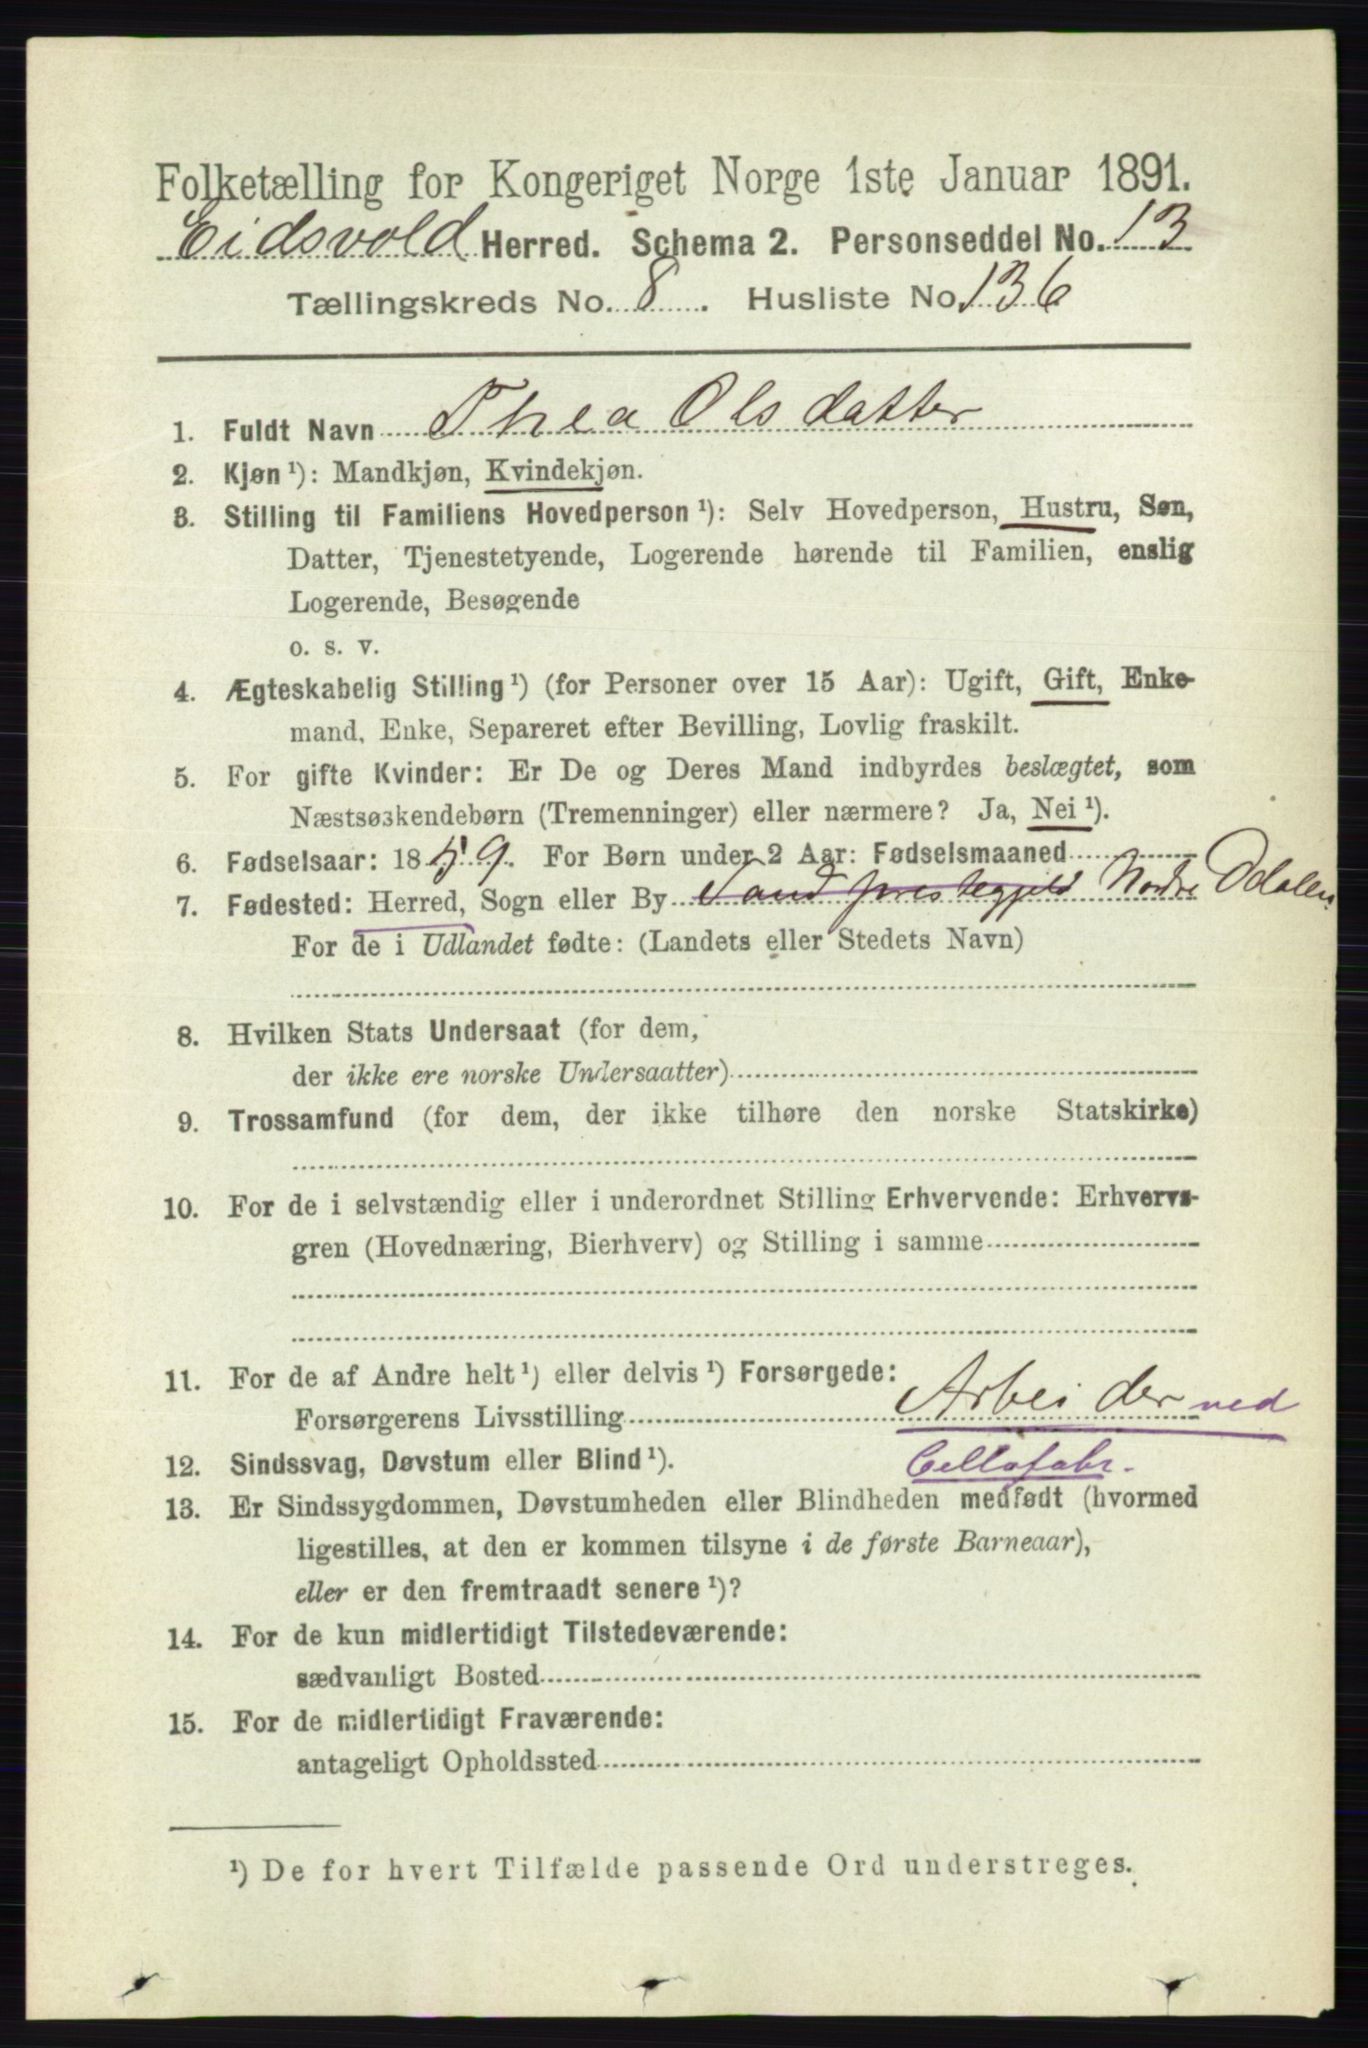 Folketælling for Kongeriget Norge 1ste Januar 1891.
Eidsvold Herred. Schema 2. Personseddel No. 13
Tællingskreds No. 8. Husliste No. 136
1. Fuldt Navn Thea Olsdatter
2. Kjøn ¹): Mandkjøn, Kvindekjøn.
3. Stilling til Familiens Hovedperson ¹): Selv Hovedperson, Hustru, Søn,
Datter, Tjenestetyende, Logerende hørende til Familien, enslig
Logerende, Besøgende
o. s. v.
4. Ægteskabelig Stilling ¹) (for Personer over 15 Aar): Ugift, Gift, Enke-
mand, Enke, Separeret efter Bevilling, Lovlig fraskilt.
5. For gifte Kvinder: Er De og Deres Mand indbyrdes beslægtet, som
Næstsøskendebørn (Tremenninger) eller nærmere? Ja, Nei ¹).
6. Fødselsaar: 1859. For Børn under 2 Aar: Fødselsmaaned
7. Fødested: Herred, Sogn eller By Sand prestegjeld Nordre Odalen
For de i Udlandet fødte: (Landets eller Stedets Navn)
8. Hvilken Stats Undersaat (for dem,
der ikke ere norske Undersaatter)
9. Trossamfund (for dem, der ikke tilhøre den norske Statskirke)
10. For de i selvstændig eller i underordnet Stilling Erhvervende: Erhvervs-
gren (Hovednæring, Bierhverv) og Stilling i samme
11. For de af Andre helt ¹) eller delvis ¹) Forsørgede:
Forsørgerens Livsstilling Arbeider ved
12. Sindssvag, Døvstum eller Blind ¹). Cellofabr.
13. Er Sindssygdommen, Døvstumheden eller Blindheden medfødt (hvormed
ligestilles, at den er kommen tilsyne i de første Barneaar),
eller er den fremtraadt senere ¹)?
14. For de kun midlertidigt Tilstedeværende:
sædvanligt Bosted
15. For de midlertidigt Fraværende:
antageligt Opholdssted
¹) De for hvert Tilfælde passende Ord understreges.